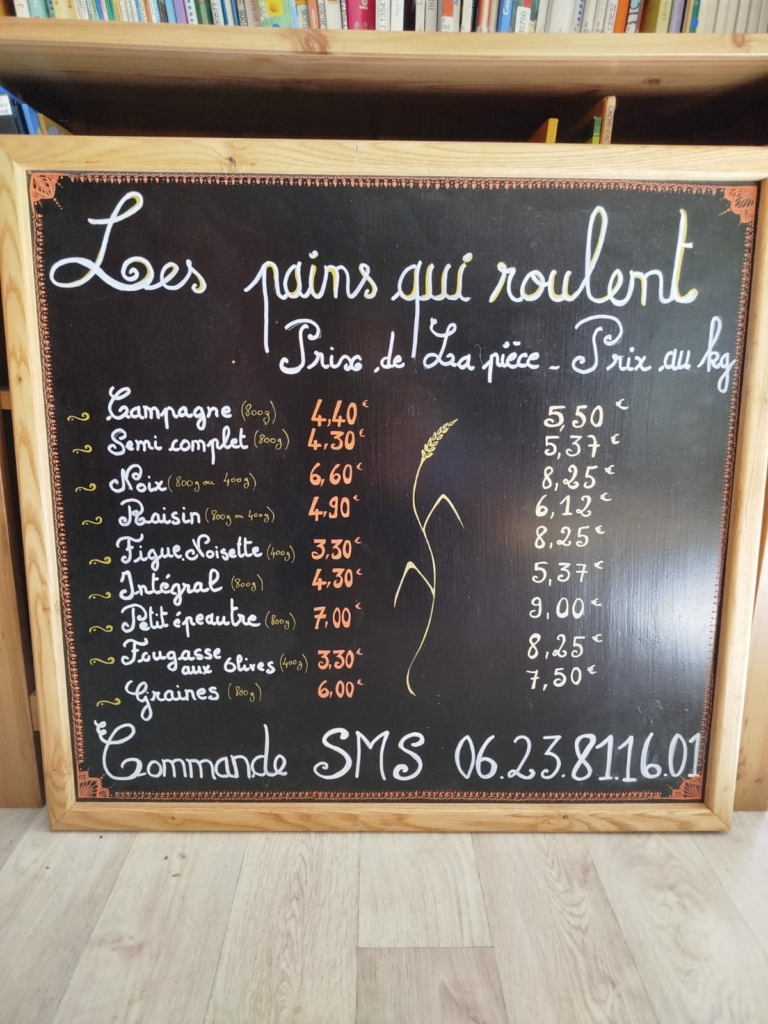 Les pains qui roulent
Prix de La pièce - Prix au kg
~ Campagne (800g) 4,40€ 5,50€
~ Semi complet (800g) 4,30€ 5,37€
~ Noix (800g ou 400g) 6,60€ 8,25€
~ Raisin (800g ou 400g) 4,90€ 6,12€
~ Figue Noisette (400g) 3,30€ 8,25€
~ Intégral (800g) 4,30€ 5,37€
~ Petit épeautre (800g) 7,00€ 9,00€
~ Fougasse
aux Olives (400g) 3,30€ 8,25€
~ Graines (800g) 6,00€ 7,50€
Commande SMS 06.23.81.16.01